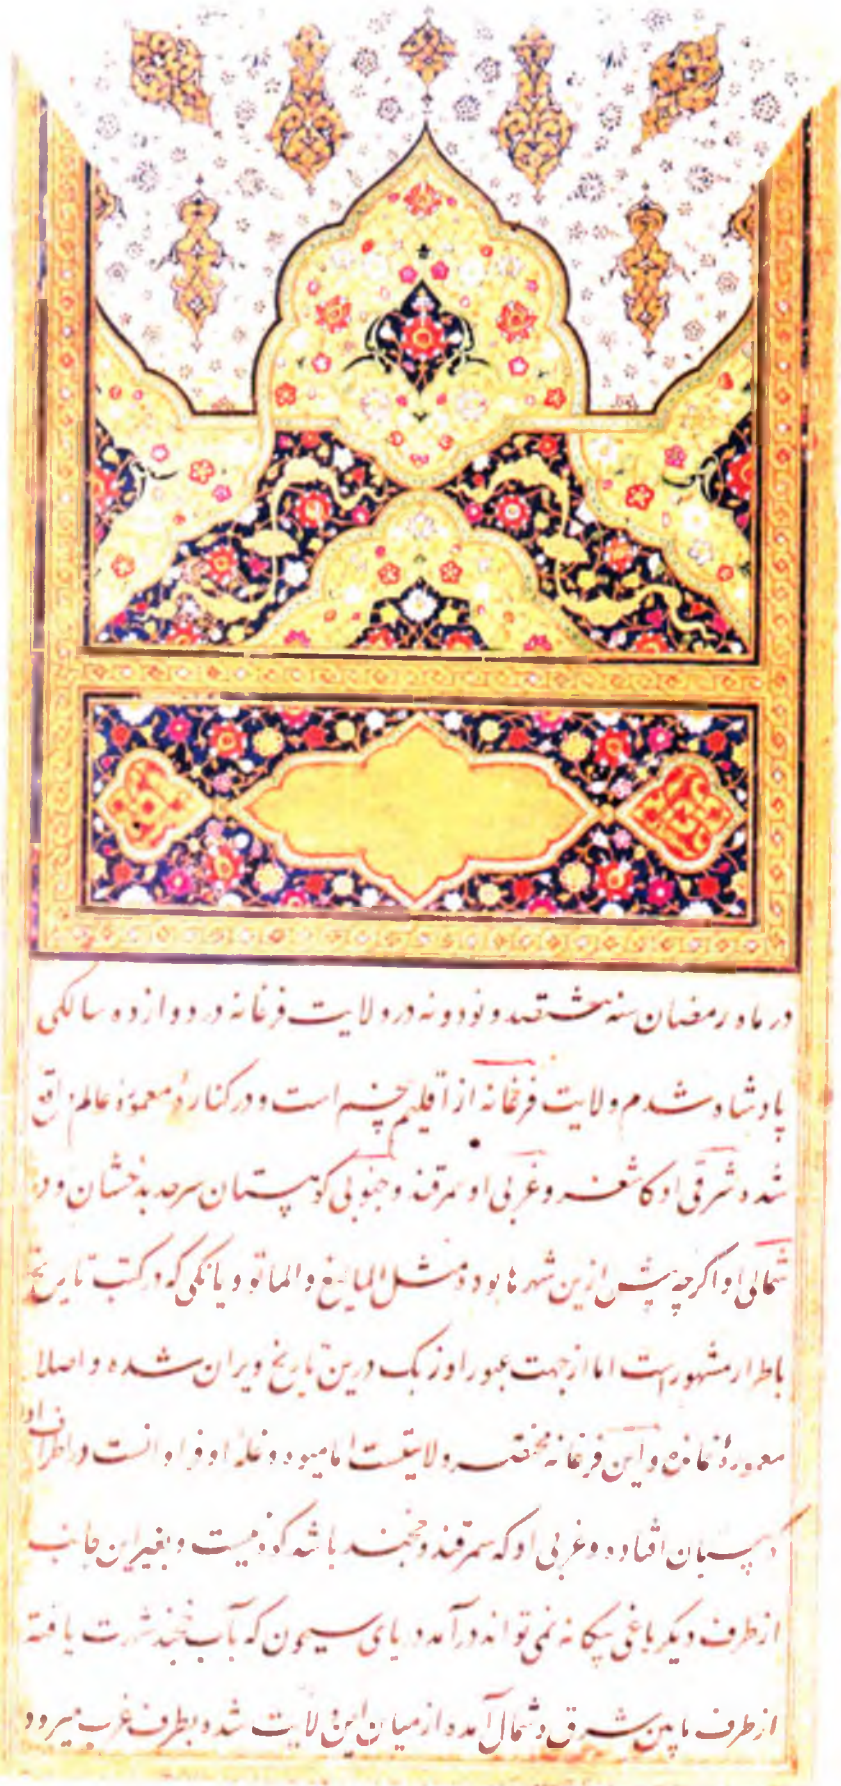 در ماه رمضان سنه هشتصد و نود و نه در ولایت فرغانه در دوازده سالگی
پادشاه شدم ولایت فرغانه از اقلیم پنجم است و در کناره معموره عالم واقع
شده شرقی او کاشغر و غربی او سمرقند و جنوبی کوهستان سرحد بدخشان و در
شمالی او اگرچه پیش ازین شهرها بود مثل المالیغ و الماتو و یانکی که در کتب تاریخ
باطرار مشهور است اما از جهت عبور اوزبک درین تاریخ ویران شده و اصلا
معموره نمانده و این فرغانه مختصر ولایتیست اما میوه و غله او فراوانست در اطراف او
کوهستان افتاده و غربی او که سمرقند و خجند باشد کوه نیست و بغیر این جانب
از طرف دیگر یاغی بیکانه نمی تواند درآمد دریای سیحون که بآب خجند شهرت یافته
از طرف مابین شرق و شمال آمده از میان این ولایت شده بطرف غرب میرود